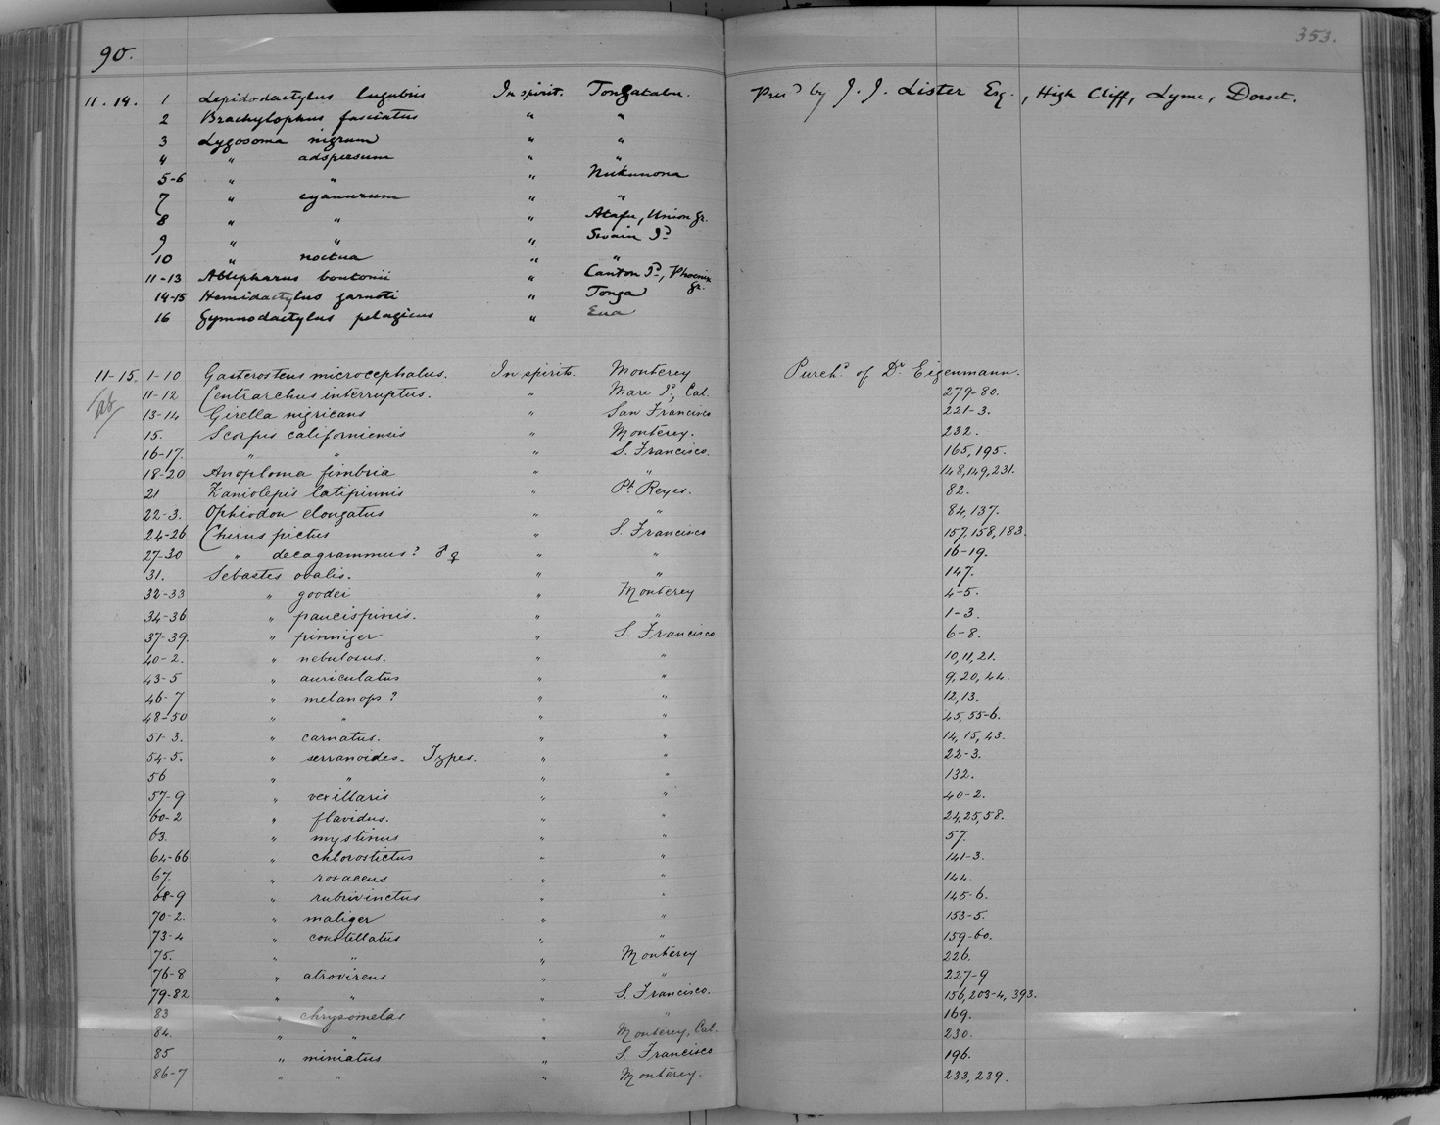 90.
353.
11.14. 1 Lepidodactylus lugubris In spirit. Tongatabu. Presd by J. J. Lister Esq., High Cliff, Lyme, Dorset.
2 Brachylophus fasciatus " "
3 Lygosoma nigrum " "
4 " adspersum " "
5-6 " " " Nukunona
7 " cyanurum " "
8 " " " Atafu, Union Gr.
9 " " " Swain Id
10 " noctua " "
11-13 Ablepharus boutonii " Canton Id, Phoenix Gr.
14-15 Hemidactylus garnoti " Tonga
16 Gymnodactylus pelagicus " Eua
11-15. 1-10 Gasterosteus microcephalus. In spirits. Monterey Purchd of Dr Eigenmann.
11-12 Centrarchus interruptus. " Mare Id, Cal. 279-80.
13-14 Girella nigricans " San Francisco 221-3.
15. Scorpis californiensis " Monterey. 232.
16-17. " " " S. Francisco. 165, 195.
18-20 Anoploma fimbria " " 148, 149, 231.
21 Zaniolepis latipinnis " Pt Reyes. 82.
22-3. Ophiodon elongatus " " 84, 137.
24-26 Chirus pictus " S. Francisco 157, 158, 183.
27-30 " decagrammus? ♂ ♀ " " 16-19.
31. Sebastes ovalis. " " 147.
32-33 " goodei " Monterey 4-5.
34-36 " paucispinis. " " 1-3.
37-39. " pinniger " S. Francisco 6-8.
40-2. " nebulosus. " " 10, 11, 21.
43-5 " auriculatus " " 9, 20, 44.
46-7 " melanops? " " 12, 13.
48-50 " " " " 45, 55-6.
51-3. " carnatus. " " 14, 15, 43.
54-5. " serranoides. Types. " " 22-3.
56 " " " " 132.
57-9 " vexillaris " " 40-2.
60-2 " flavidus. " " 24, 25, 58.
63. " mystinus " " 57.
64-66 " chlorostictus " " 141-3.
67. " rosaceus " " 144.
68-9 " rubrivinctus " " 145-6.
70-2. " maliger " " 153-5.
73-4 " constellatus " " 159-60.
75. " " " Monterey 226.
76-8 " atrovirens " " 227-9
79-82 " " " S. Francisco. 156, 203-4, 393.
83 " chrysomelas " " 169.
84. " " " Monterey, Cal. 230.
85 " miniatus " S. Francisco 196.
86-7 " " " Monterey. 233, 239.